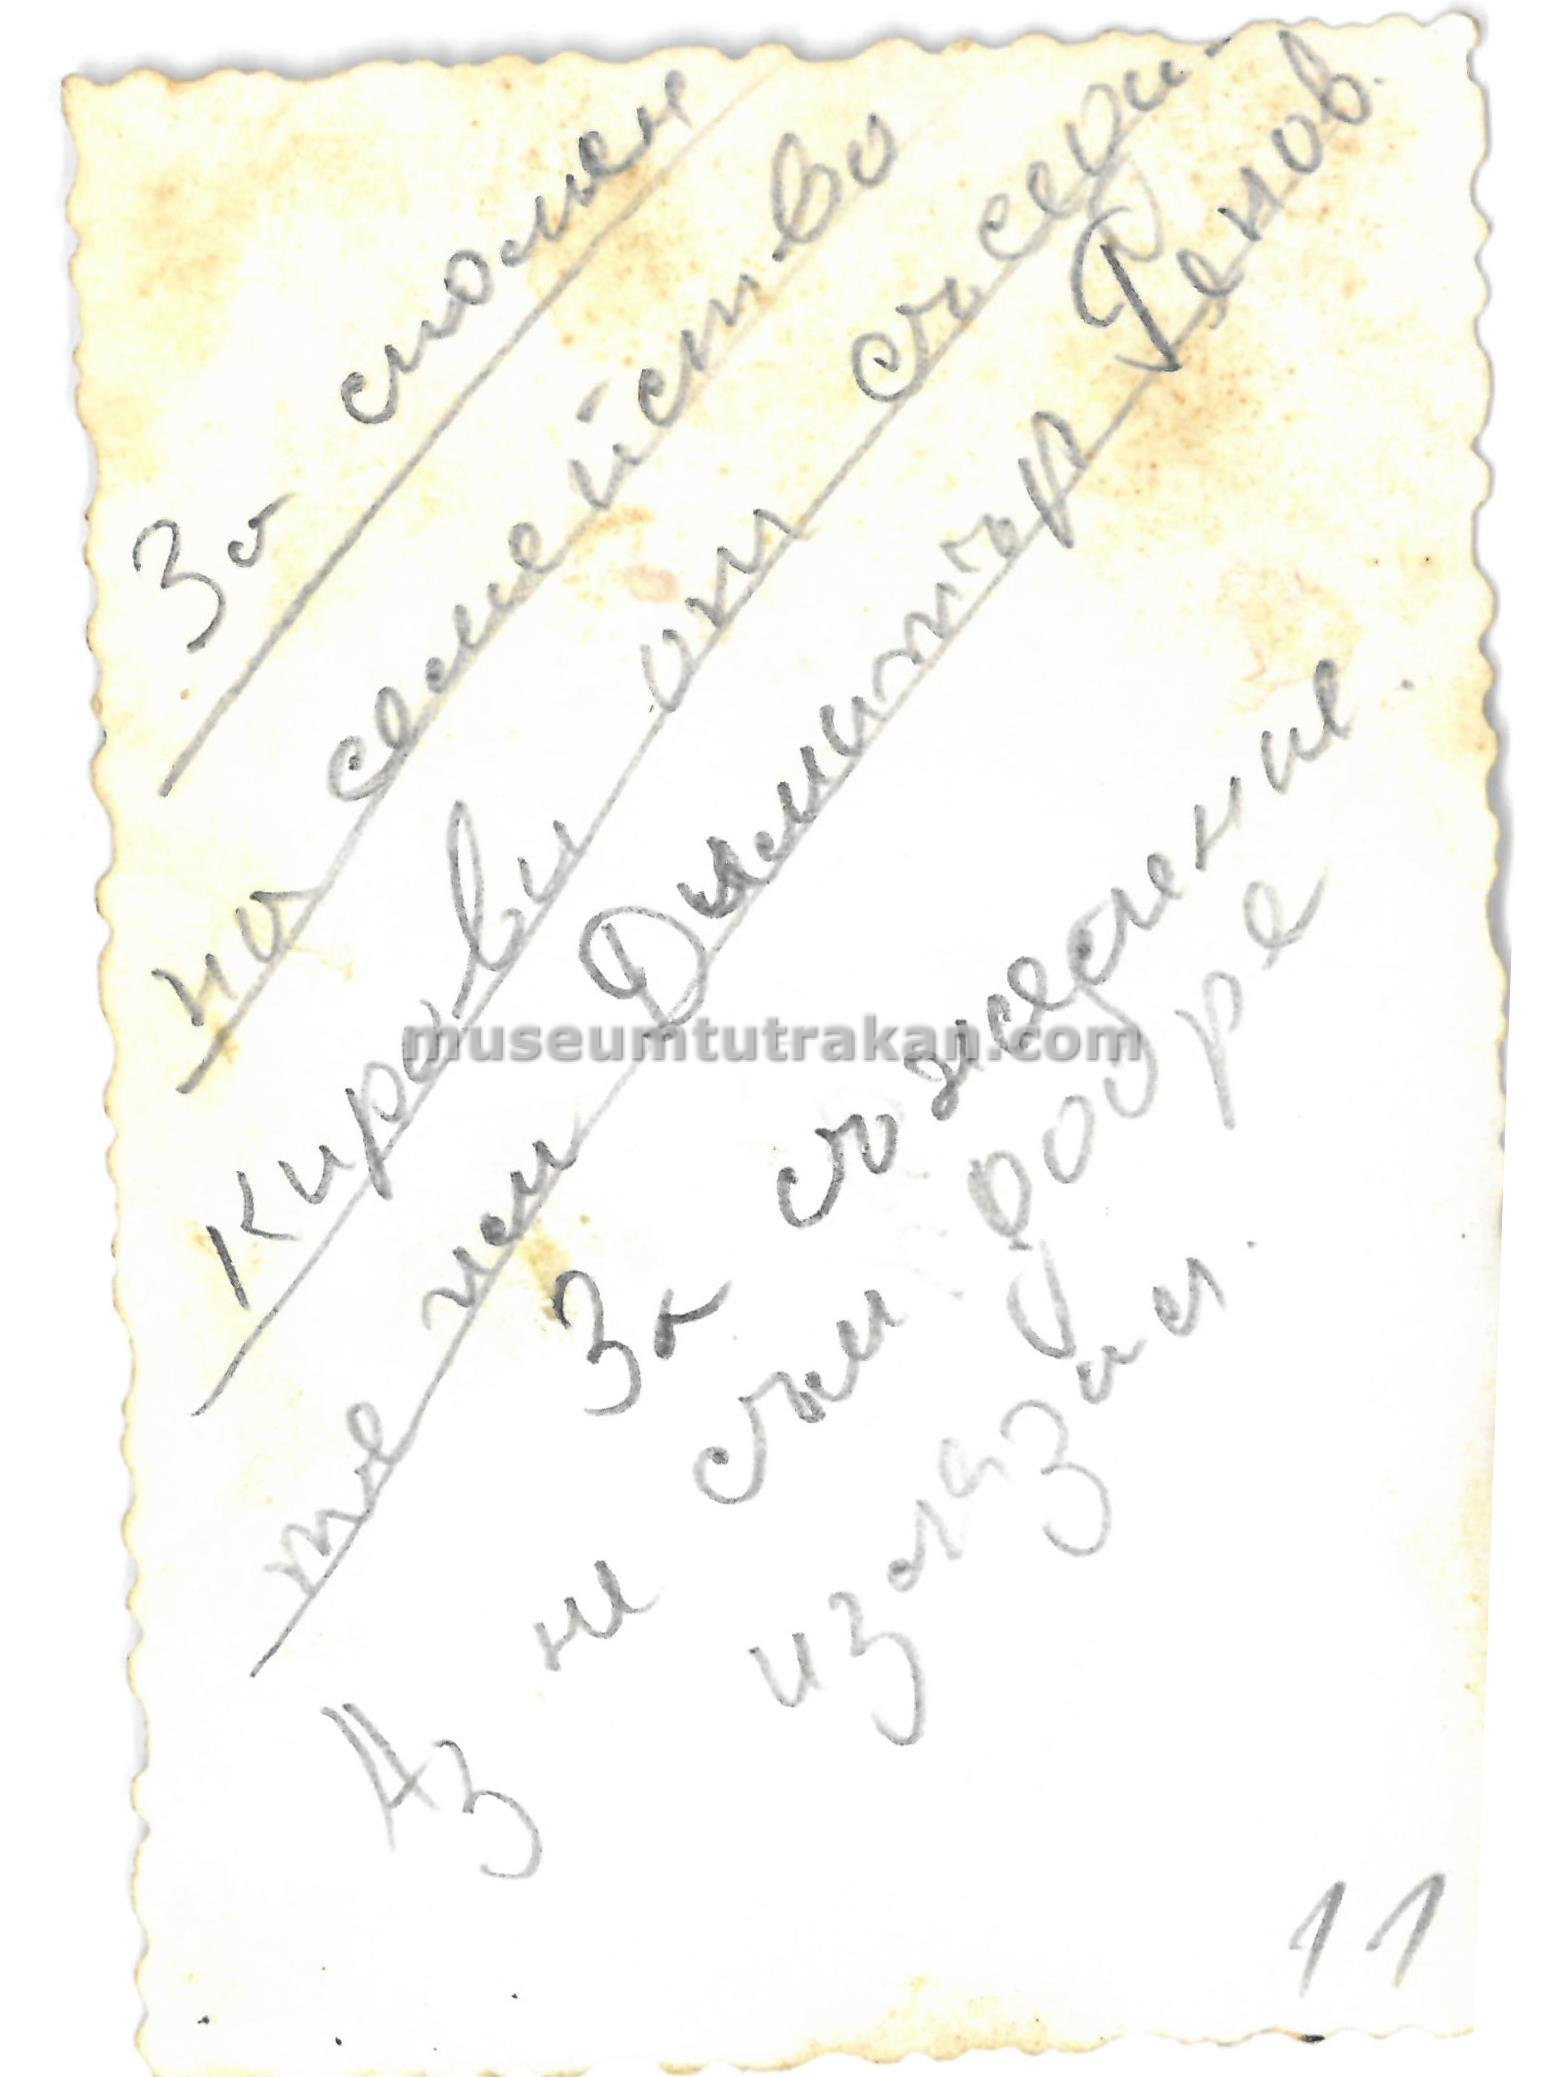 За спомен
на семейство
Кирови от съседи-
те Димитър Генов.
За съжеление
Аз ни съм добре
излязал.
11
museumtutrakan.com